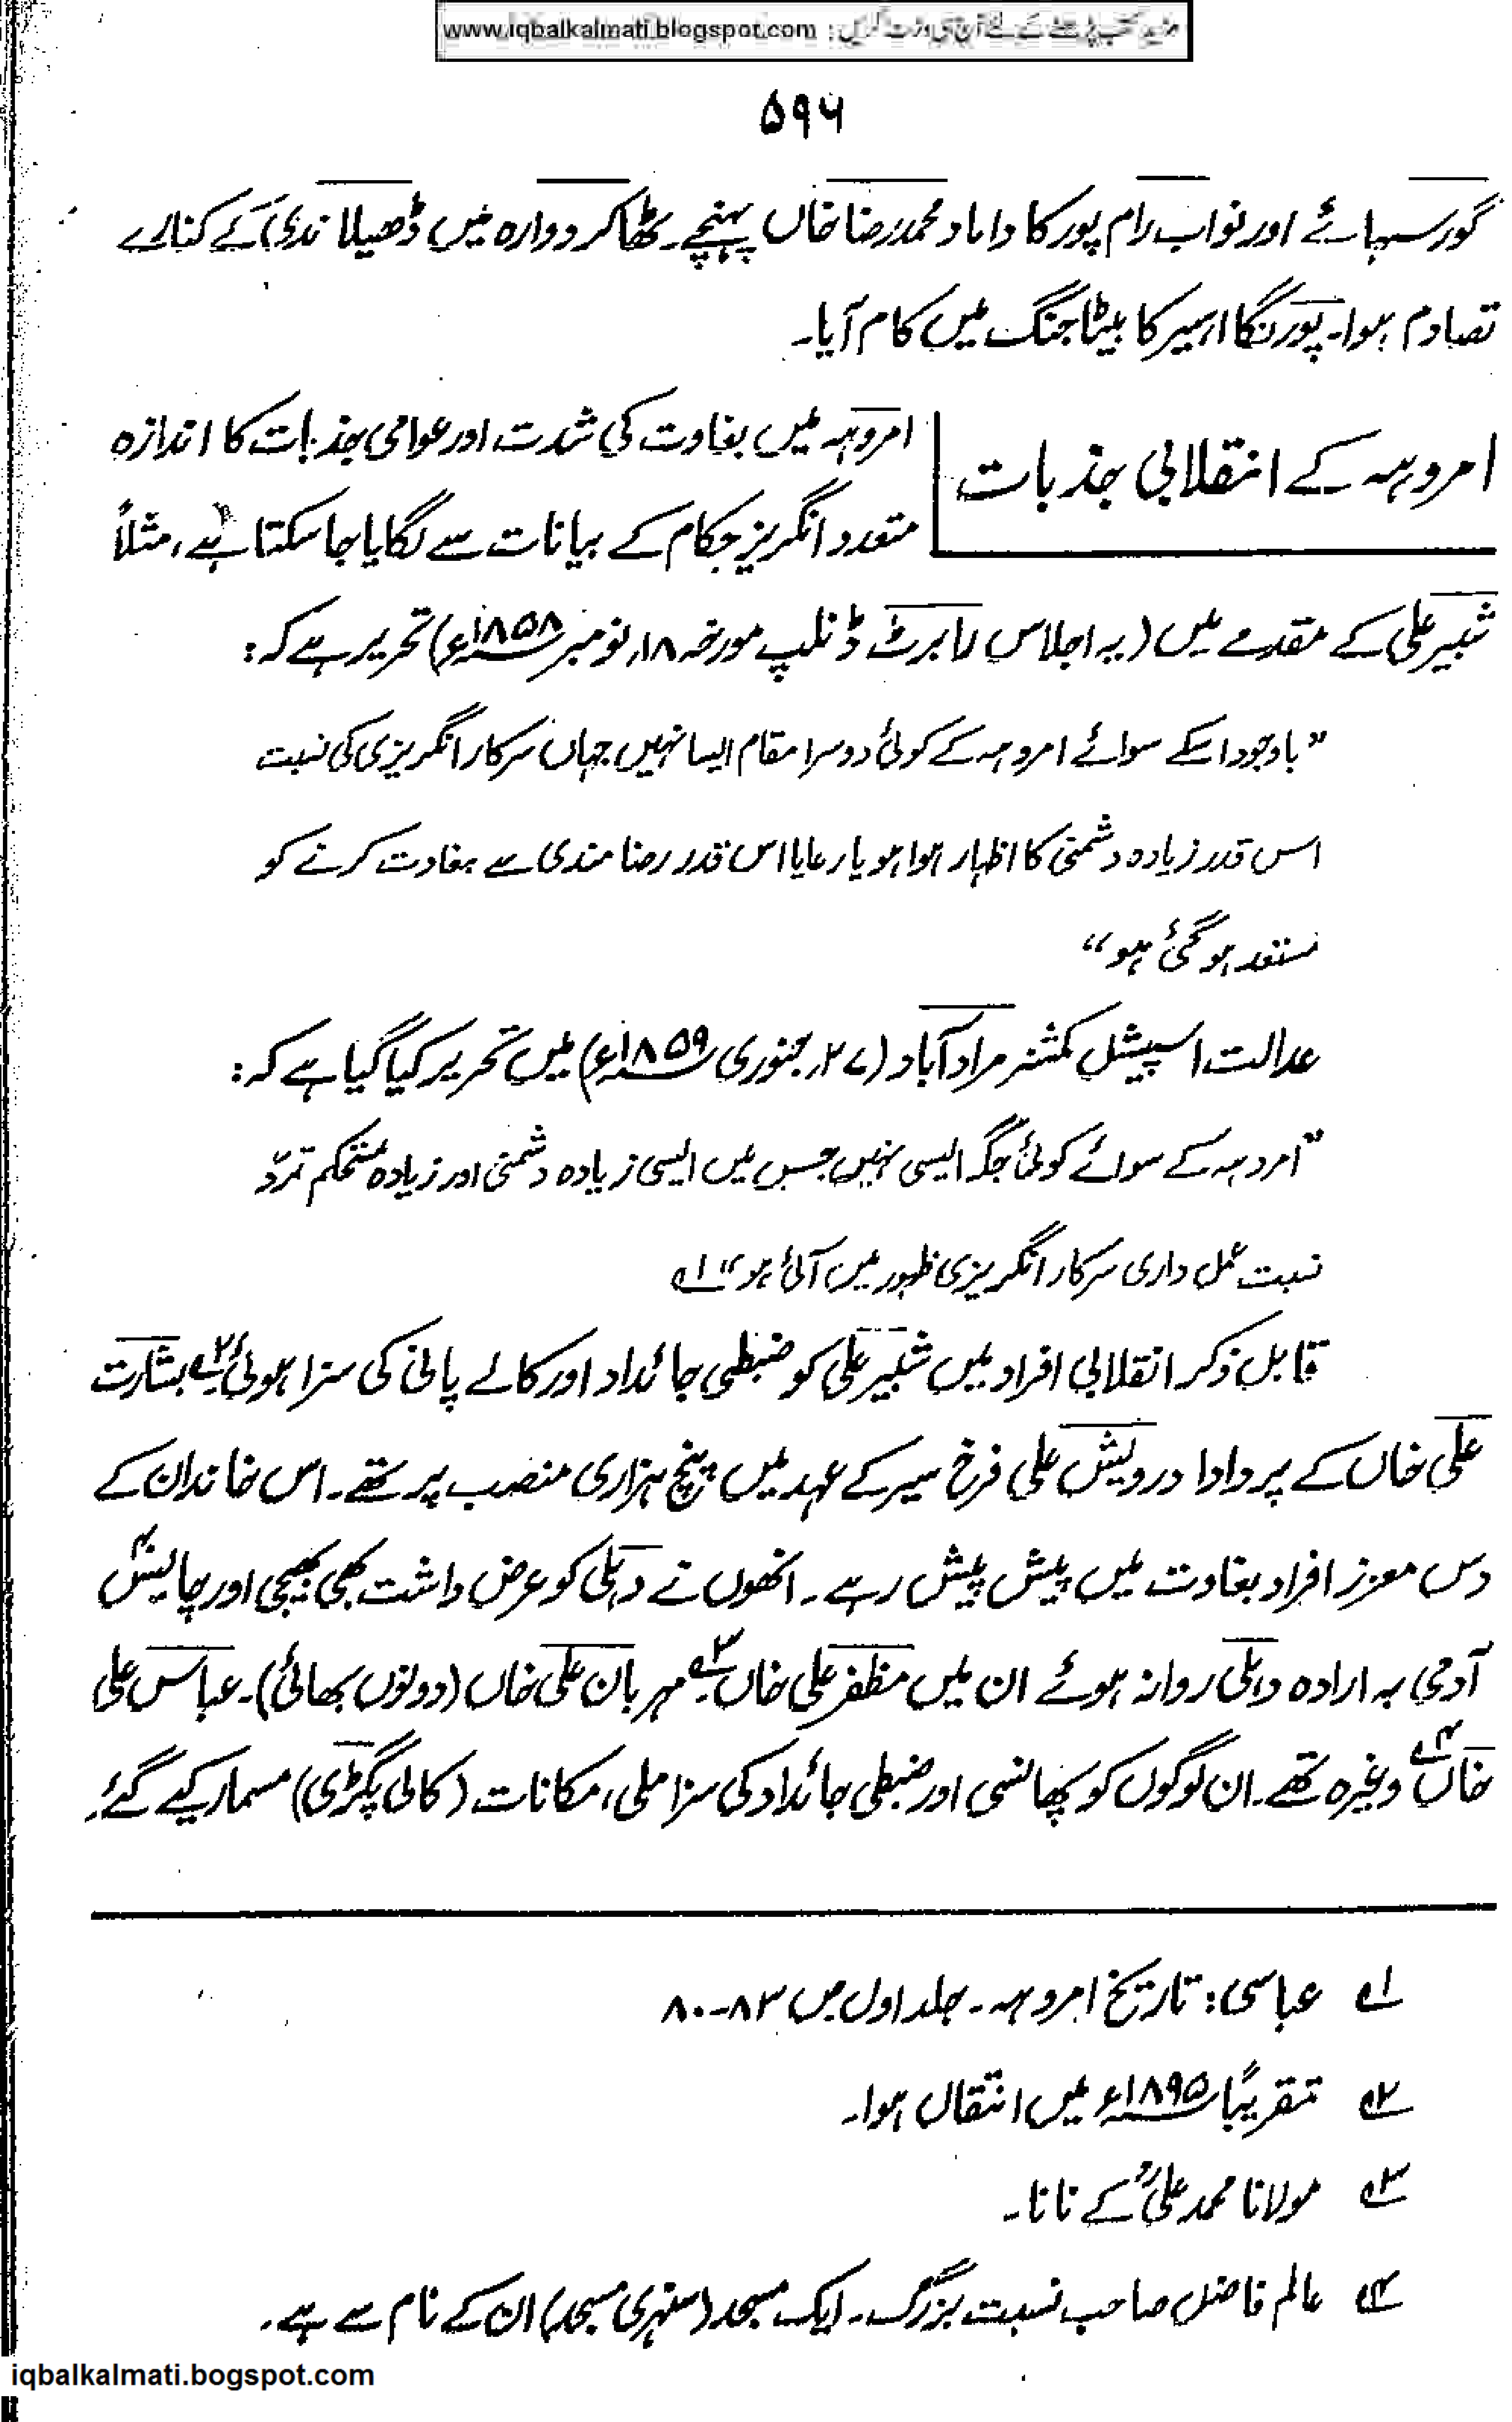 www.iqbalkalmati.blogspot.com : مزید کتب پڑھنے کے لئے آج ہی وزٹ کریں
۵۹۶
گورسہائے اور نواب رام پور کا داماد محمد رضا خاں پہنچے۔ ٹھاکر دوارہ میں ڈھیلا ندی کے کنارے
تصادم ہوا۔ پورنگا اہیر کا بیٹا جنگ میں کام آیا۔
امروہہ کے انقلابی جذبات
امروہہ میں بغاوت کی شدت اور عوامی جذبات کا اندازہ
متعدد انگریز حکام کے بیانات سے لگایا جا سکتا ہے، مثلاً
شبیر علی کے مقدمے میں (بہ اجلاس رابرٹ ڈنلپ مورخہ ۱۸؍ نومبر ۱۸۵۸ء) تحریر ہے کہ:
”باوجود اسکے سوائے امروہہ کے کوئی دوسرا مقام ایسا نہیں جہاں سرکار انگریزی کی نسبت
اس قدر زیادہ دشمنی کا اظہار ہوا ہو یا رعایا اس قدر رضا مندی سے بغاوت کرنے کو
مستعد ہو گئی ہو“
عدالت اسپیشل کمشنر مرادآباد (۲۷؍ جنوری ۱۸۵۹ء) میں تحریر کیا گیا ہے کہ:
”امروہہ کے سوائے کوئی جگہ ایسی نہیں جس میں ایسی زیادہ دشمنی اور زیادہ مستحکم تمرّد
نسبت عمل داری سرکار انگریزی ظہور میں آئی ہو“ ۱؎
قابل ذکر انقلابی افراد میں شبیر علی کو ضبطی جائداد اور کالے پانی کی سزا ہوئی ۲؎ بشارت
علی خاں کے پردادا درویش علی فرخ سیر کے عہد میں پنج ہزاری منصب پر تھے۔ اس خاندان کے
دس معزز افراد بغاوت میں پیش پیش رہے۔ انھوں نے دہلی کو عرض داشت بھی بھیجی اور چالیس
آدمی بہ ارادہ دہلی روانہ ہوئے ان میں مظفر علی خاں ۳؎ مہربان علی خاں (دونوں بھائی)۔ عباس علی
خاں ۴؎ وغیرہ تھے۔ ان لوگوں کو پھانسی اور ضبطی جائداد کی سزا ملی، مکانات (کالی پگڑی) مسمار کیے گئے۔
۱؎ عباسی: تاریخ امروہہ۔ جلد اول ص ۸۳-۸۰
۲؎ تقریباً ۱۸۹۵ء میں انتقال ہوا۔
۳؎ مولانا محمد علیؒ کے نانا۔
۴؎ عالم فاضل صاحب نسبت بزرگ۔ ایک مسجد (سنہری مسجد) ان کے نام سے ہے۔
iqbalkalmati.bogspot.com